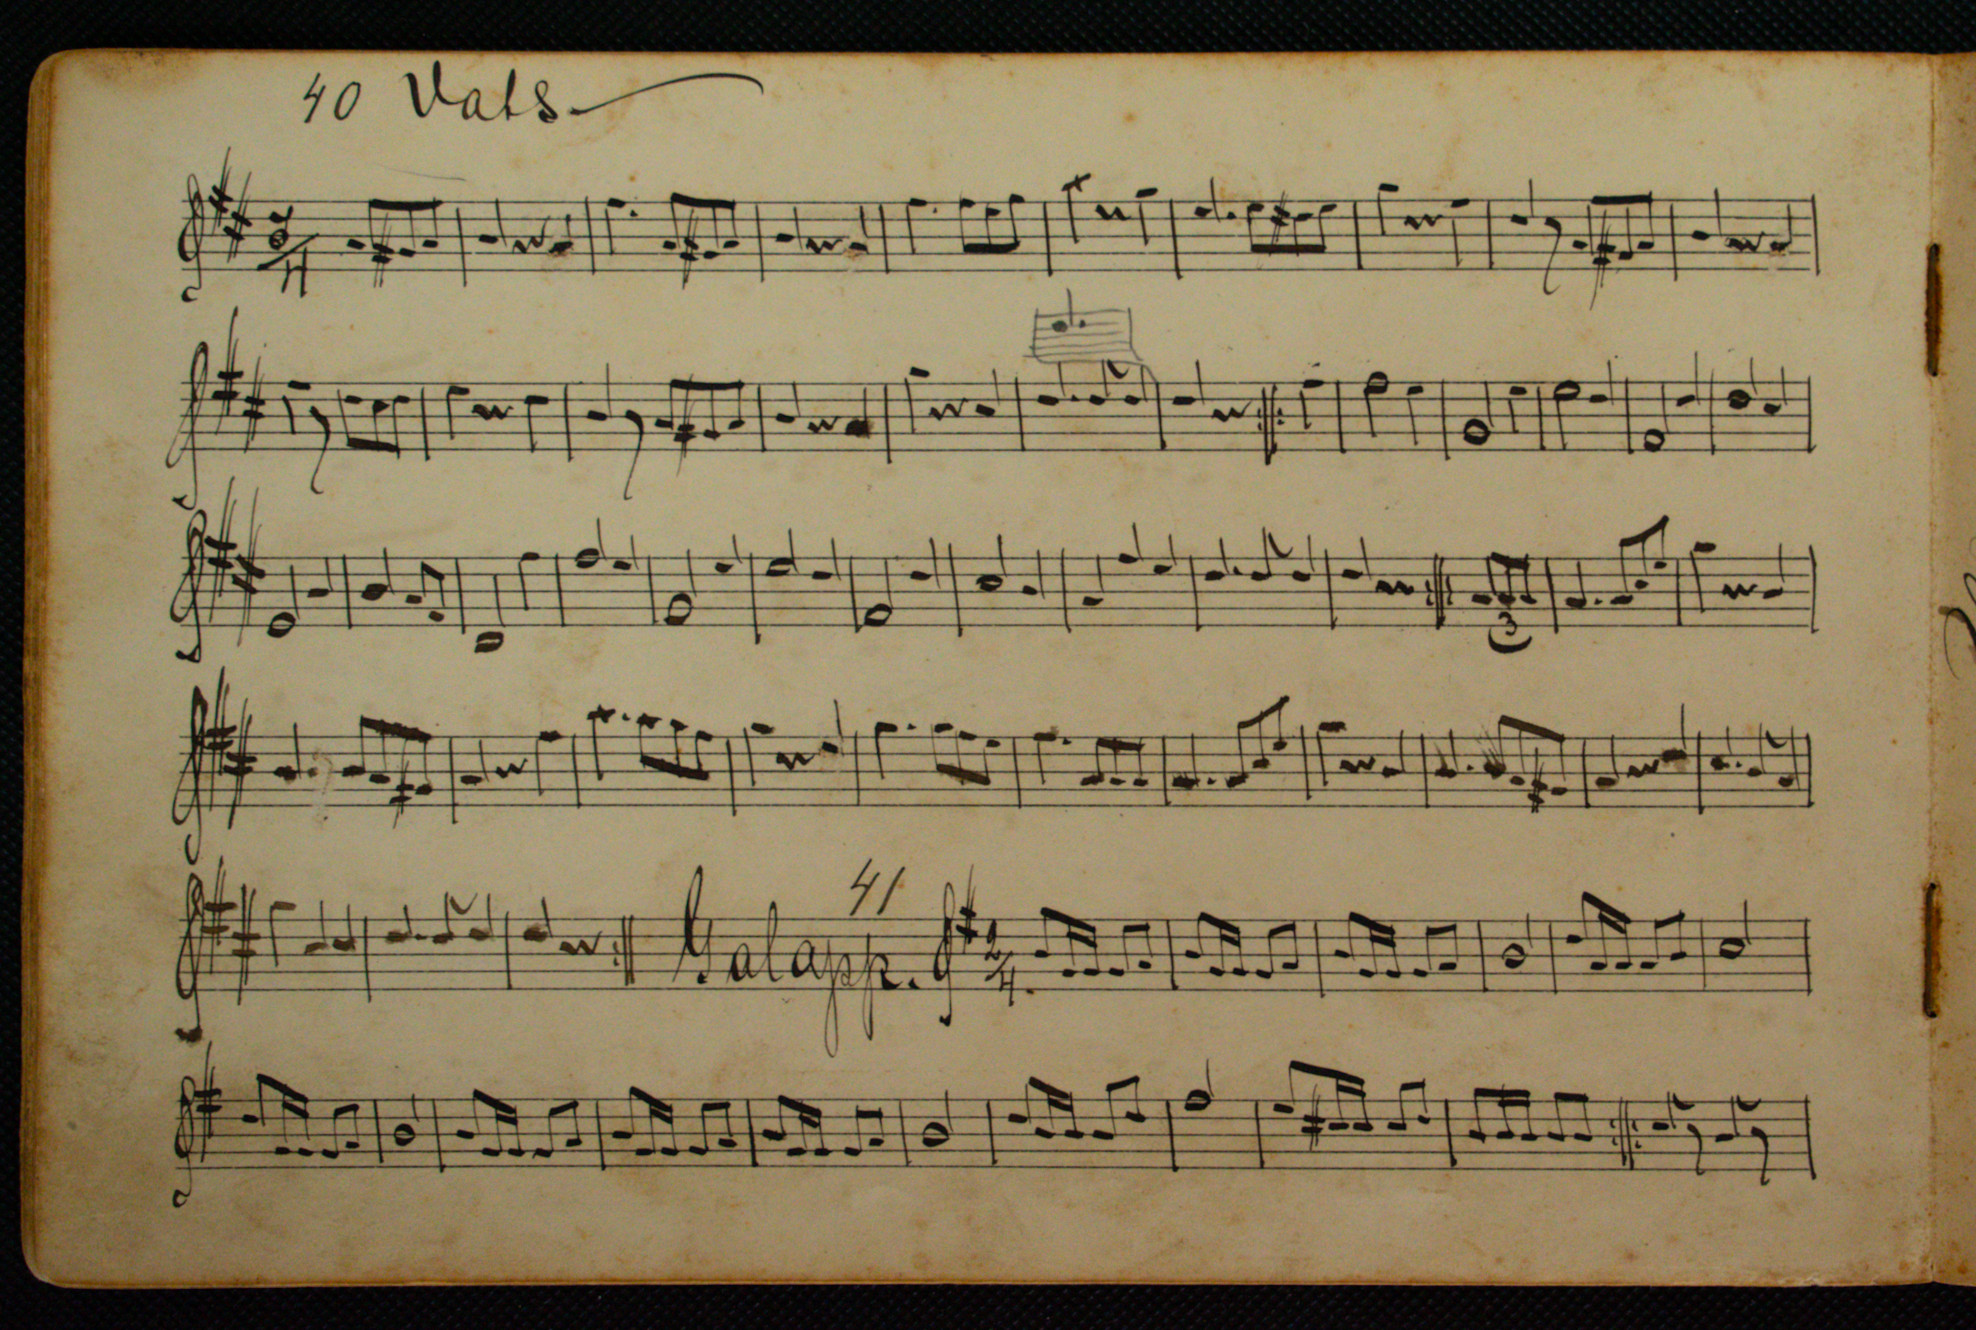 40 Vals
3/4
3
41
Galapp. 2/4.